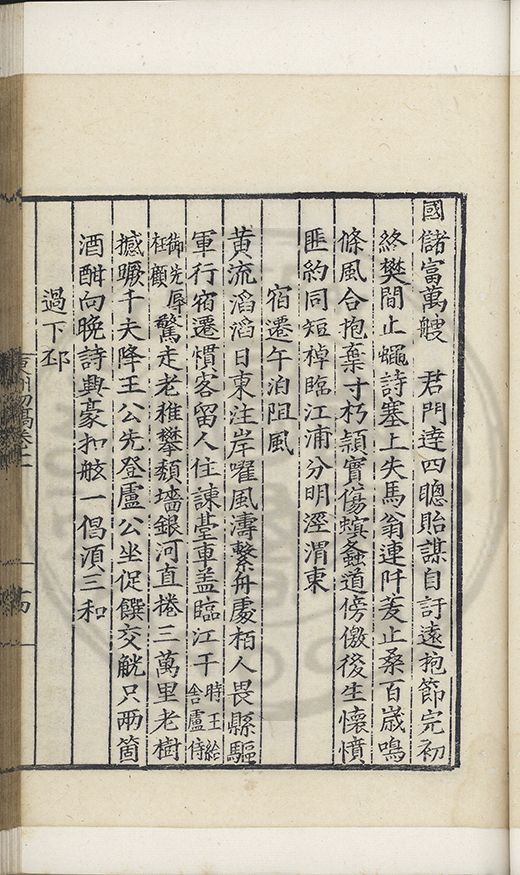 國儲富萬艘　君門達四聰貽謀自訏遠抱節完初
終樊間止蠅詩塞上失馬翁連阡茇止桑百歲鳴
條風合抱棄寸朽頴實傷螟螽道傍儌後生懷憤
匪約同短棹臨江浦分明涇渭東
宿遷午泊阻風
黄流滔滔日東注岸囓風濤繫舟處栢人畏縣驅
軍行宿遷慣客留人住諫臺車盖臨江干時王給舍盧侍
御先辱枉顧驚走老稚攀頽墻銀河直捲三萬里老樹
撼蹶千夫降王公先登盧公坐促饌交觥只兩箇
酒酣向晚詩興豪扣舷一倡湏三和
過下邳